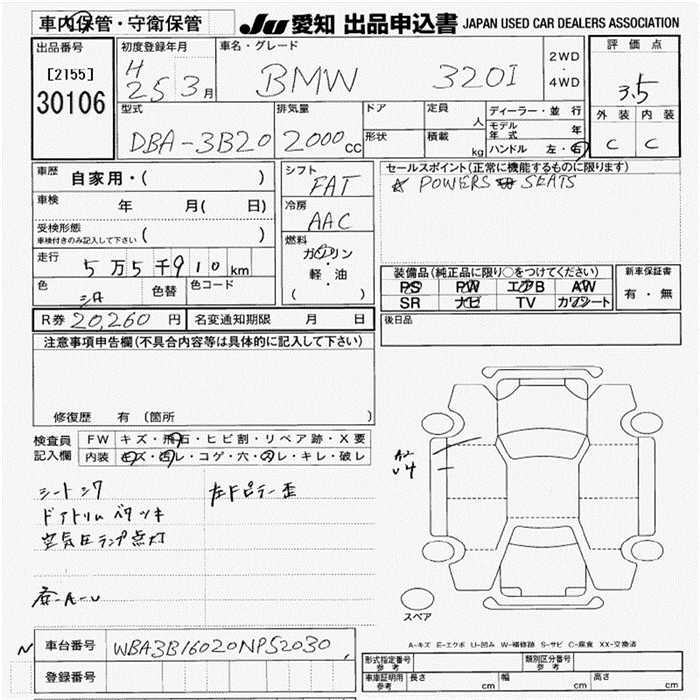 車内保管・守衛保管
JU 愛知 出品申込書 JAPAN USED CAR DEALERS ASSOCIATION
出品番号
[2155]
30106
初度登録年月
H 25 3月
車名・グレード
BMW 320I
2WD
・
4WD
評価点
3.5
外装 内装
C C
型式
DBA-3B20
排気量
2000cc
ドア
形状
定員 人
積載 kg
ディーラー・並行
モデル年式 年
ハンドル 左・右
車歴 自家用・( )
車検 年 月( 日)
受検形態
車検付きのみ記入して下さい ( )
走行 5万5千910km
色 シロ 色替 色コード
シフト
FAT
冷房
AAC
燃料
ガソリン
・
軽・油
( )
セールスポイント(正常に機能するものに限ります)
☆ POWERS SEATS
装備品(純正品に限り○をつけてください)
PS PW エアB AW
SR ナビ TV カワシート
新車保証書
有・無
R券 20,260円 名変通知期限 月 日
後日品
注意事項申告欄(不具合内容等は具体的に記入して下さい)
修復歴 有 (箇所 )
検査員記入欄
FW キズ・飛石・ヒビ割・リペア跡・X要
内装 キズ・汚レ・コゲ・穴・スレ・キレ・破レ
シートシワ
ドアトリム ベタツキ
空気圧ランプ点灯
A2
U4
スペア
A-キズ E-エクボ U-凹み W-補修跡 S-サビ C-腐食 XX-交換済
N 車台番号 WBA3B16020NP52030
登録番号
形式指定番号
参考
類別区分番号
参考
車庫証明用
参考
長さ cm 幅 cm 高さ cm